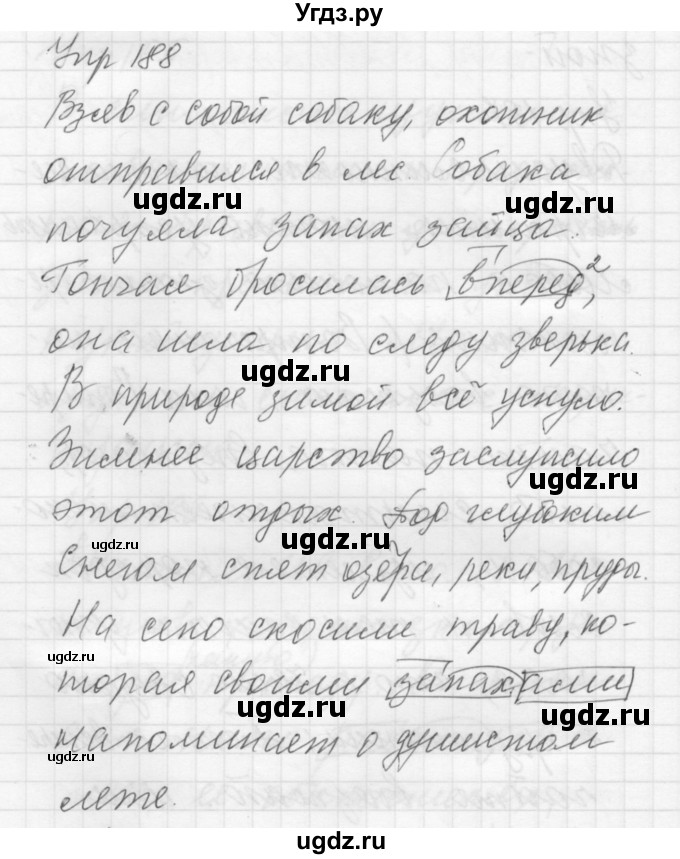 Угдз.ру
Упр 188
Взяв с собой собаку, охотник
отправился в лес. Собака
почуяла запах зайца.
Гончая бросилась вперед²,
она шла по следу зверька.
В природе зимой всё уснуло.
Зимнее царство заслужило
этот отдых. Под глубоким
Снегом спят озёра, реки, пруды.
На сено скосили траву, ко-
торая своими запахами
напоминает о душистом
лете.
ugdz.ru
ugdz.ru
ugdz.ru
ugdz.ru
ugdz.ru
ugdz.ru
ugdz.ru
ugdz.ru
ugdz.ru
ugdz.ru
ugdz.ru
ugdz.ru